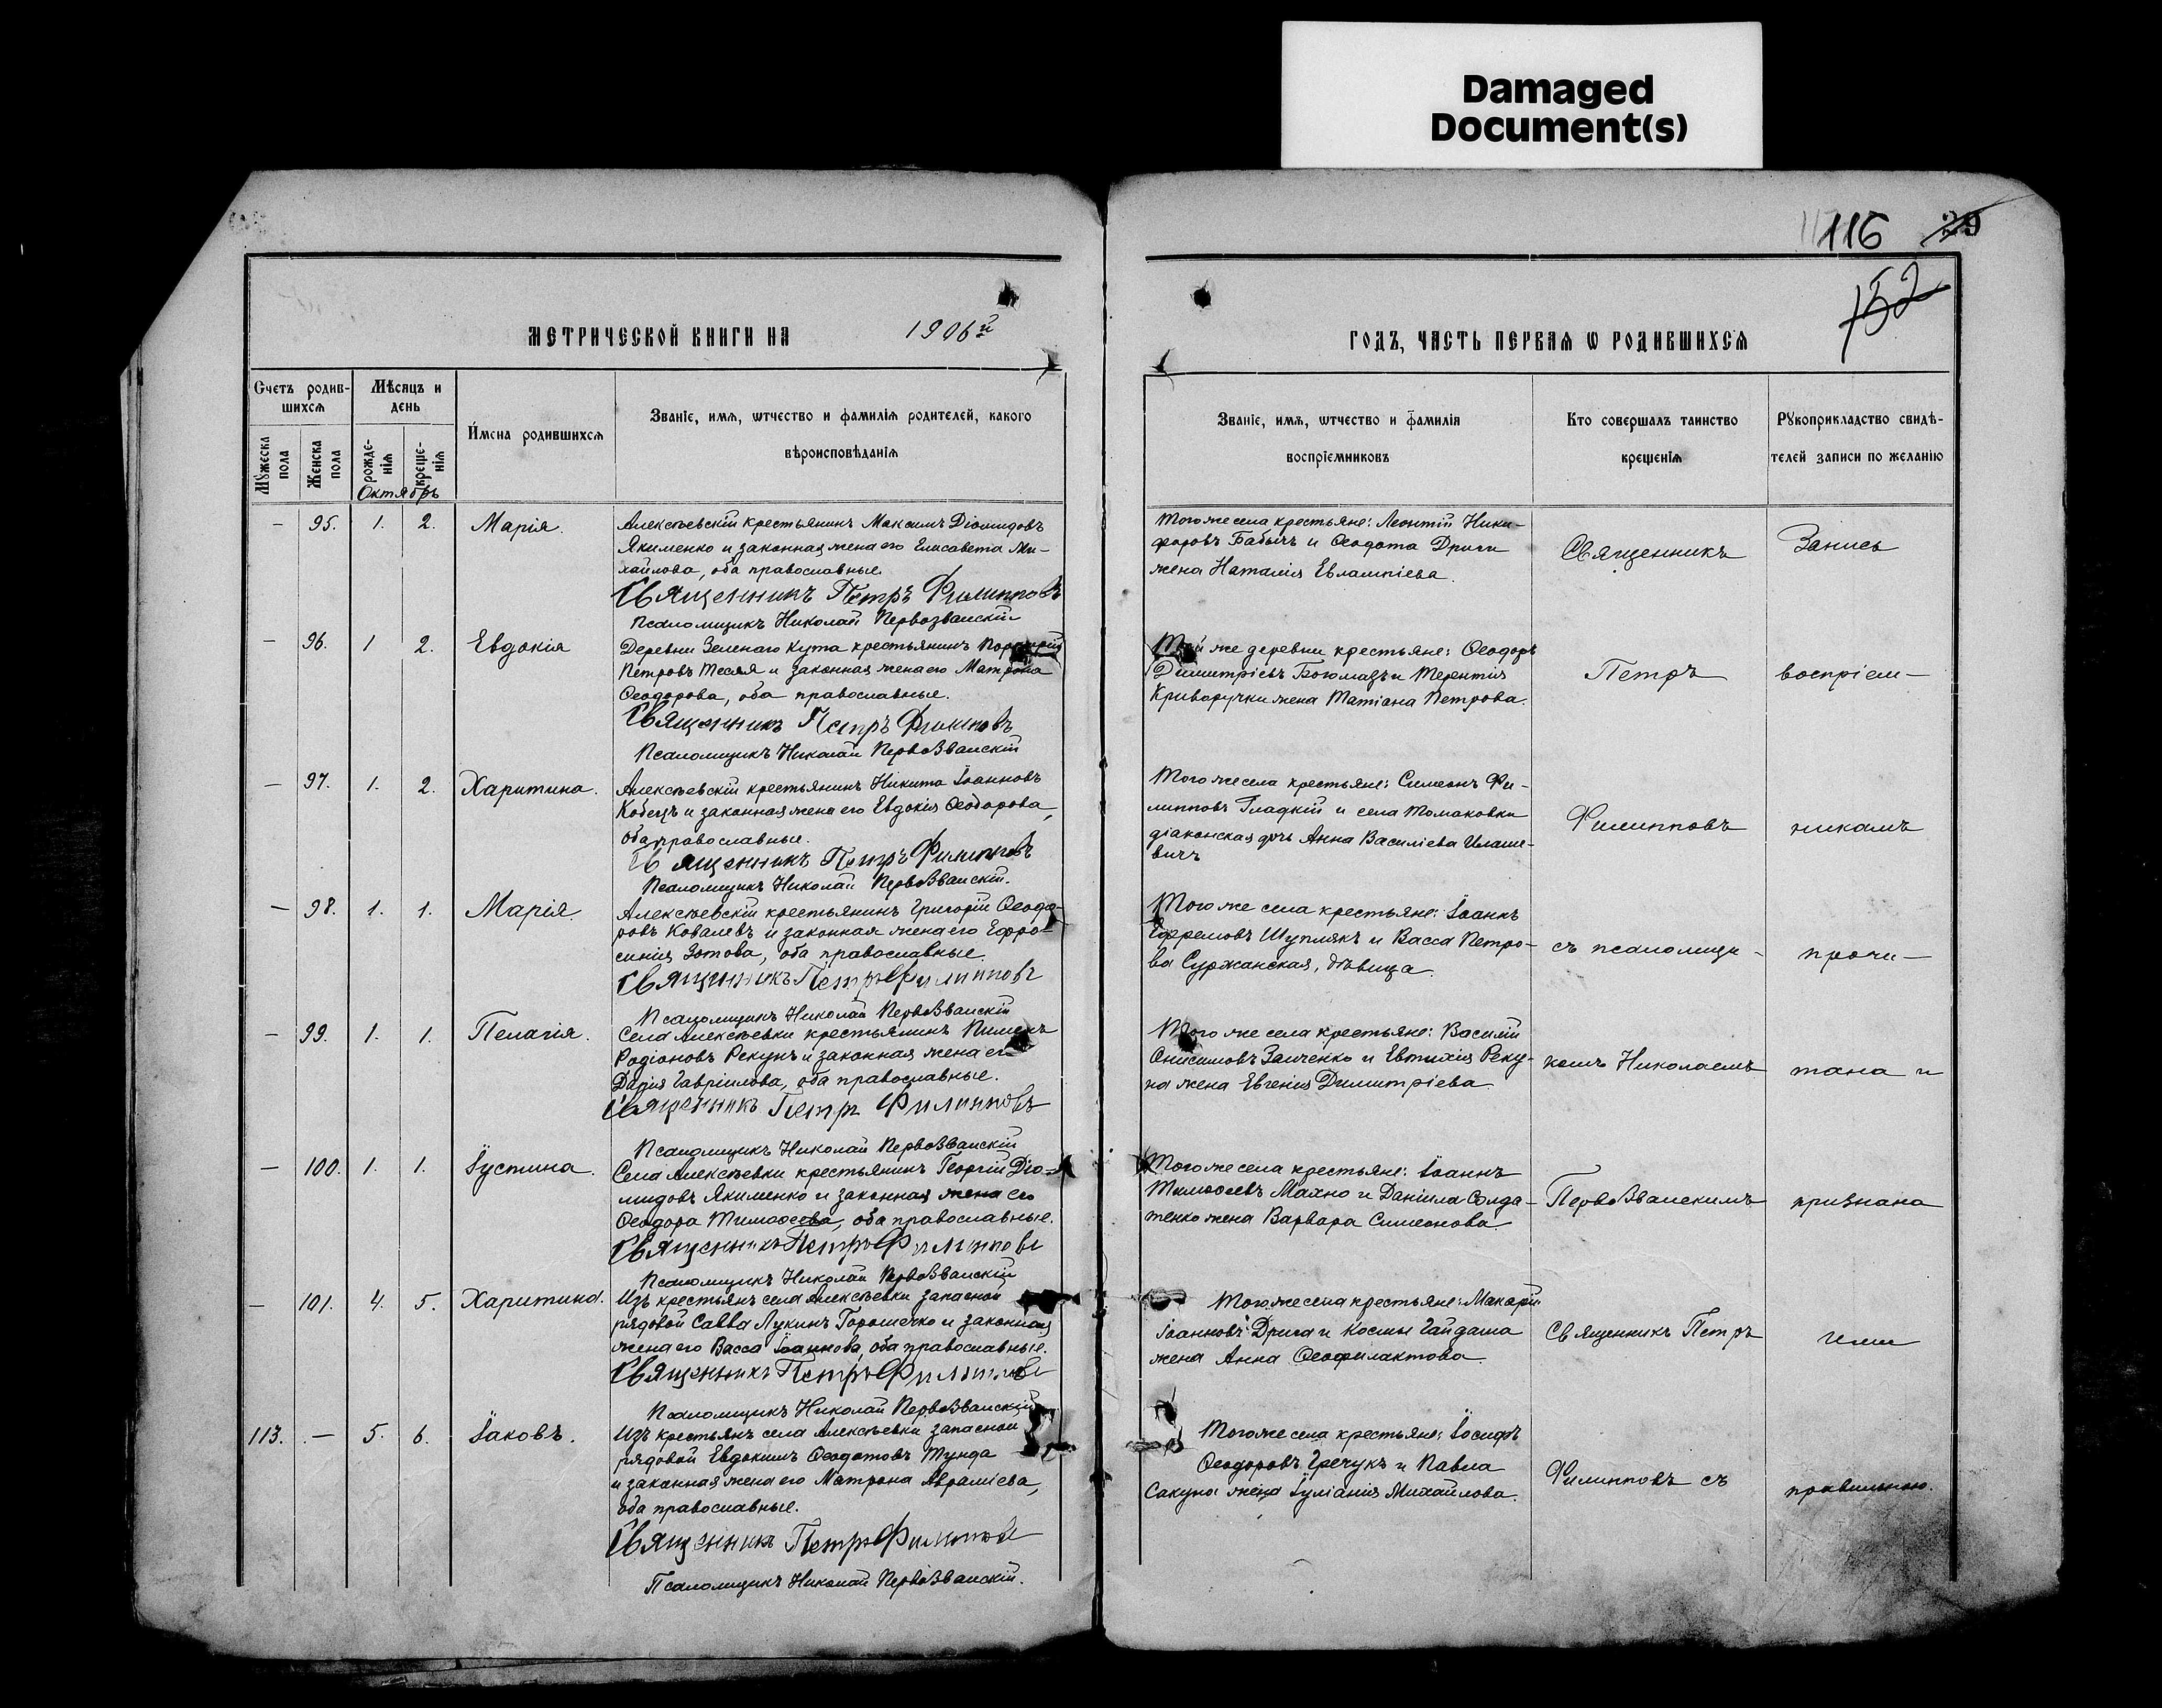 Damaged
Document(s)
116 29
152
МЕТРИЧЕСКОЙ КНИГИ НА 1906й
ГОДЪ, ЧАСТЬ ПЕРВАЯ Ѡ РОДИВШИХСЯ
Счетъ родив-
шихся
Мѣсяцъ и
день
Имена родившихся
Званіе, имя, ѡтчество и фамилія родителей, какого
вѣроисповѣданія
Мужеска пола
Женска пола
рожде-
нія
креще-
нія
Октябрь
Званіе, имя, ѡтчество и фамилія
воспріемниковъ
Кто совершалъ таинство
крещенія
Рукоприкладство свидѣ-
телей записи по желанію
— 95. 1. 2. Марія.
Алексѣевскій крестьянинъ Максимъ Діомидовъ
Якименко и законная жена его Елисавета Ми-
хайлова, оба православные.
Священникъ Петръ Филипповъ
Псаломщикъ Николай Первозванскій
Того же села крестьяне: Леонтій Ники-
форовъ Бабычъ и Ѳеодота Дриги
жена Наталія Евлампіева.
Священникъ
Запись
— 96. 1 2. Евдокія
Деревни Зеленаго Кута крестьянинъ
Петровъ Тесля и законная жена его Матрона
Ѳеодорова, оба православные.
Священникъ Петръ Филипповъ
Псаломщикъ Николай Первозванскій
Той же деревни крестьяне: Ѳеодоръ
Димитріевъ Богомазъ и Терентія
Криворучки жена Татіана Петрова.
Петръ
воспріем-
— 97. 1. 2. Харитина.
Алексѣевскій крестьянинъ Никита Іоанновъ
Кобецъ и законная жена его Евдокія Ѳеодорова,
оба православные.
Священникъ Петръ Филипповъ
Псаломщикъ Николай Первозванскій.
Того же села крестьяне: Симеонъ Фи-
липповъ Гладкій и села Томаковки
діаконская дочь Анна Василіева Илаше-
вичъ
Филипповъ
никамъ
— 98. 1. 1. Марія
Алексѣевскій крестьянинъ Григорій Ѳеодо-
ровъ Ковалевъ и законная жена его Ефро-
синія Зотова, оба православные.
Священникъ Петръ Филипповъ
Псаломщикъ Николай Первозванскій
Того же села крестьяне: Іоаннъ
Ефремовъ Шуплякъ и Васса Петро-
ва Суржанская, дѣвица.
съ псаломщи-
прочи-
— 99. 1. 1. Пелагія.
Села Алексѣевки крестьянинъ Пименъ
Родіоновъ Рекунъ и законная жена его
Дарія Гавріилова, оба православные.
Священникъ Петръ Филипповъ
Псаломщикъ Николай Первозванскій
Того же села крестьяне: Василій
Онисимовъ Заиченко и Евтихія Реку-
на жена Евгенія Димитріева
комъ Николаемъ
тана и
— 100. 1. 1. Іустина.
Села Алексѣевки крестьянинъ Георгій Діо-
мидовъ Якименко и законная жена его
Ѳеодора Тимоѳеева, оба православные.
Священникъ Петръ Филипповъ
Псаломщикъ Николай Первозванскій
Того же села крестьяне: Іоаннъ
Тимоѳеевъ Махно и Даніила Солда-
тенко жена Варвара Симеонова.
Первозванскимъ
признана
— 101. 4. 5. Харитина.
Изъ крестьянъ села Алексѣевки запасной
рядовой Савва Лукинъ Горошечко и законная
жена его Васса Іоаннова, оба православные.
Священникъ Петръ Филипповъ
Псаломщикъ Николай Первозванскій
Того же села крестьяне: Макарій
Іоанновъ Дрига и Космы Гайдаша
жена Анна Ѳеофилактова.
Священникъ Петръ
ими
113. — 5. 6. Іаковъ.
Изъ крестьянъ села Алексѣевки запасной
рядовой Евдокимъ Ѳеодотовъ Тунда
и законная жена его Матрона Авраміева,
оба православные.
Священникъ Петръ Филипповъ
Псаломщикъ Николай Первозванскій.
Того же села крестьяне: Іосифъ
Ѳеодоровъ Гречукъ и Павла
Сакуна жена Іуліанія Михайлова.
Филипповъ съ
правильною.